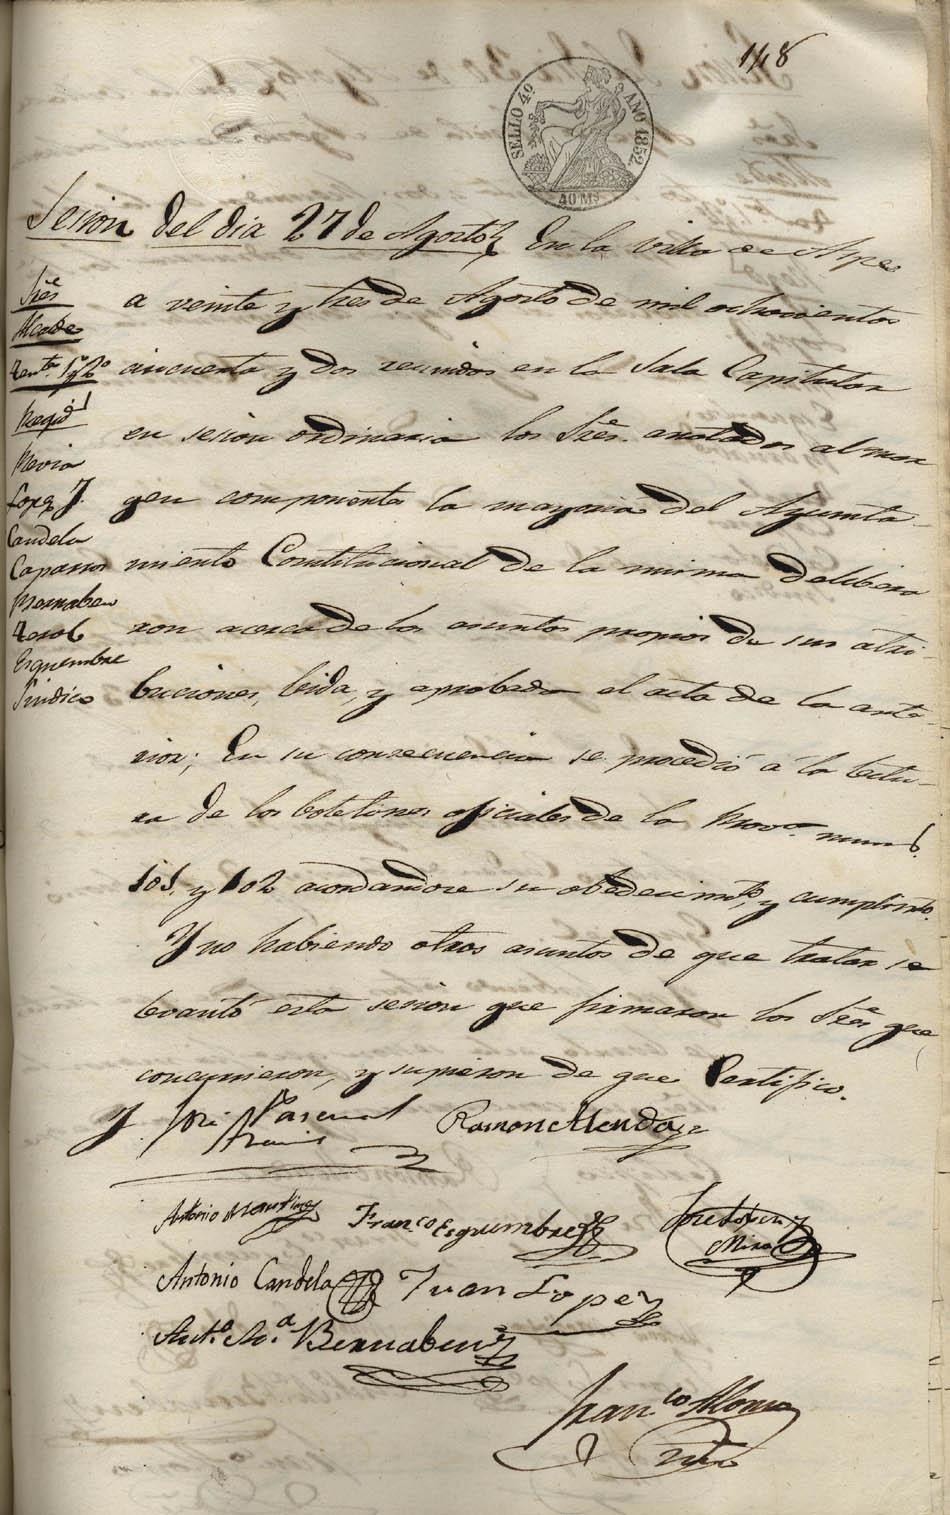 148
SELLO 4º AÑO 1852.
40 Ms
Sesion del dia 27 de Agosto En la villa de Aspe
a veinte y tres de Agosto de mil ochocientos
cincuenta y dos reunidos en la Sala Capitular
en sesion ordinaria los Sres. anotados al mar
gen componentes la mayoria del Ayunta-
miento Constitucional de la misma delibera
ron acerca de los asuntos propios de sus atri-
buciones, leida, y aprobada el acta de la ante-
rior; En su consecuencia se procedió a la lectu-
ra de los boletines oficiales de la Prova. nums.
101. y 102 acordandose su obedecimto, y cumplimto.
Y no habiendo otros asuntos de que tratar se
levantó esta sesion que firmaron los Sres que
concurrieron, y supieron de que Certifico.
Sres
Alcalde
Tente. 1º y 2º
Regid
Lopez J.
Candela
Caparros
Bernabeu
Esquembre
Sindico
José Pascual
Ramon Alenda
Antonio Martinez
Franco Esquembre
Jose Lopez y
Mira
Antonio Candela
Juan Lopez
Anto. Ma. Bernabeu
Franco Alonso